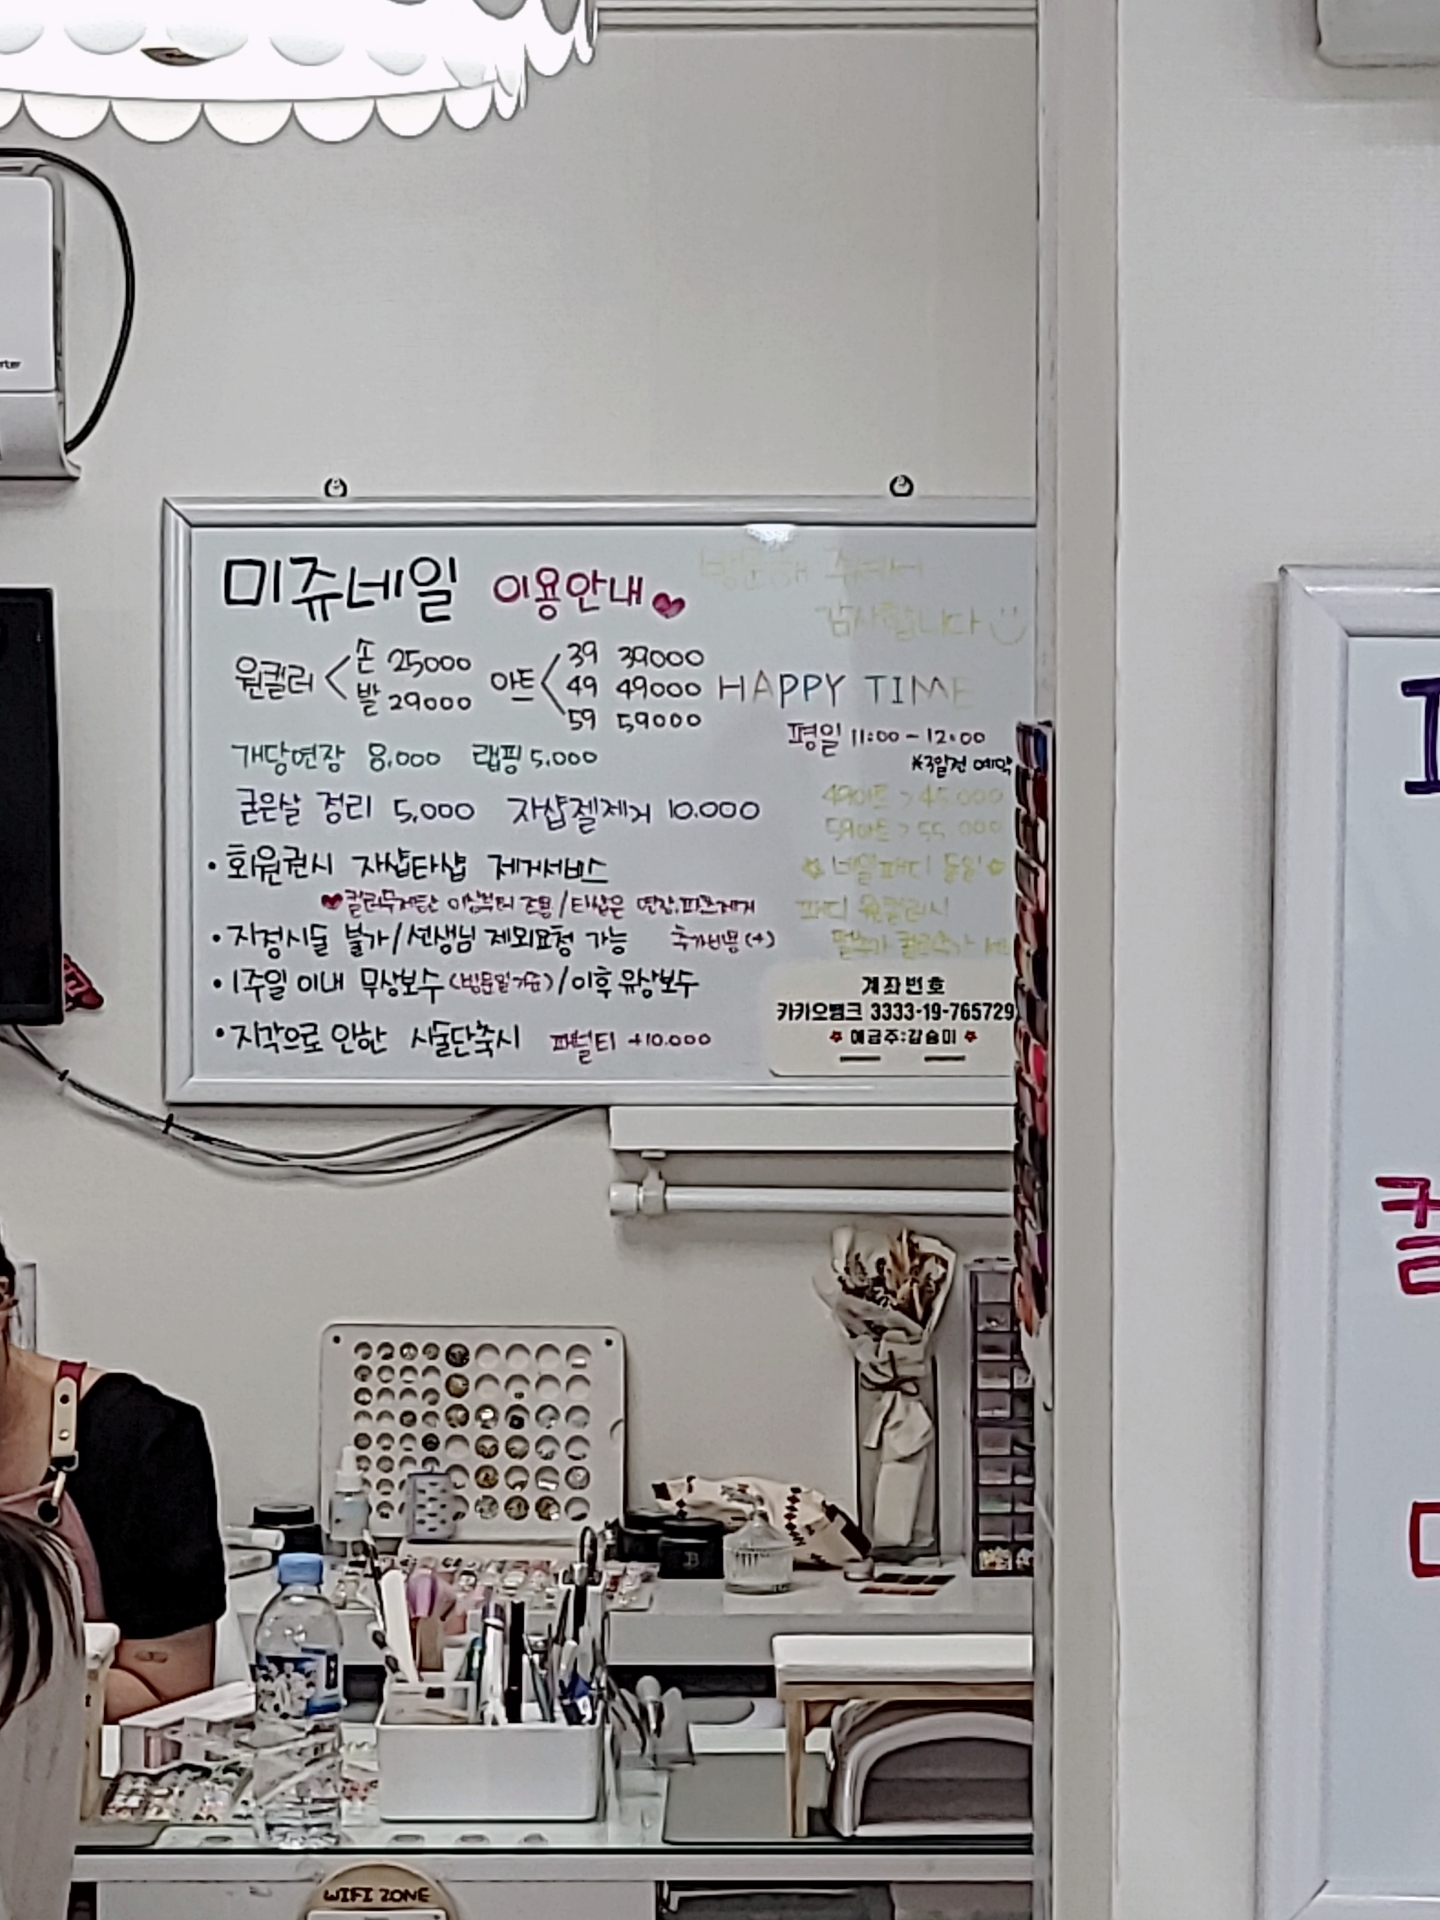 미쥬네일 이용안내
방문해 주셔서
감사합니다
원컬러 손 25000
발 29000
아트 39 39000
49 49000
59 59000
HAPPY TIME
평일 11:00 - 12:00
*3일전 예약
개당연장 8,000 랩핑 5,000
49아트 > 45,000
59아트 > 55,000
굳은살 정리 5,000 자샵젤제거 10,000
네일패디 동일
• 회원권시 자샵타샵 제거서비스
이상부터 조용/타샵은 연장,파츠제거
패디 원컬러시
• 지정시술 불가/선생님 제외요청 가능 추가비용(+)
• 1주일 이내 무상보수(방문일기준)/이후 유상보수
계좌번호
카카오뱅크 3333-19-765729
예금주:강슬미
• 지각으로 인한 시술단축시 패널티 +10,000
WIFI ZONE